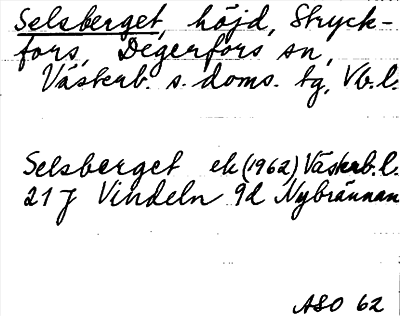 Selsberget, höjd, Stryck-
fors, Degerfors sn,
Västerb. s. doms. tg, Vb.l.
Selsberget ek (1962) Västerb.l.
21 J Vindeln 9d Nybrännan
ASO 62